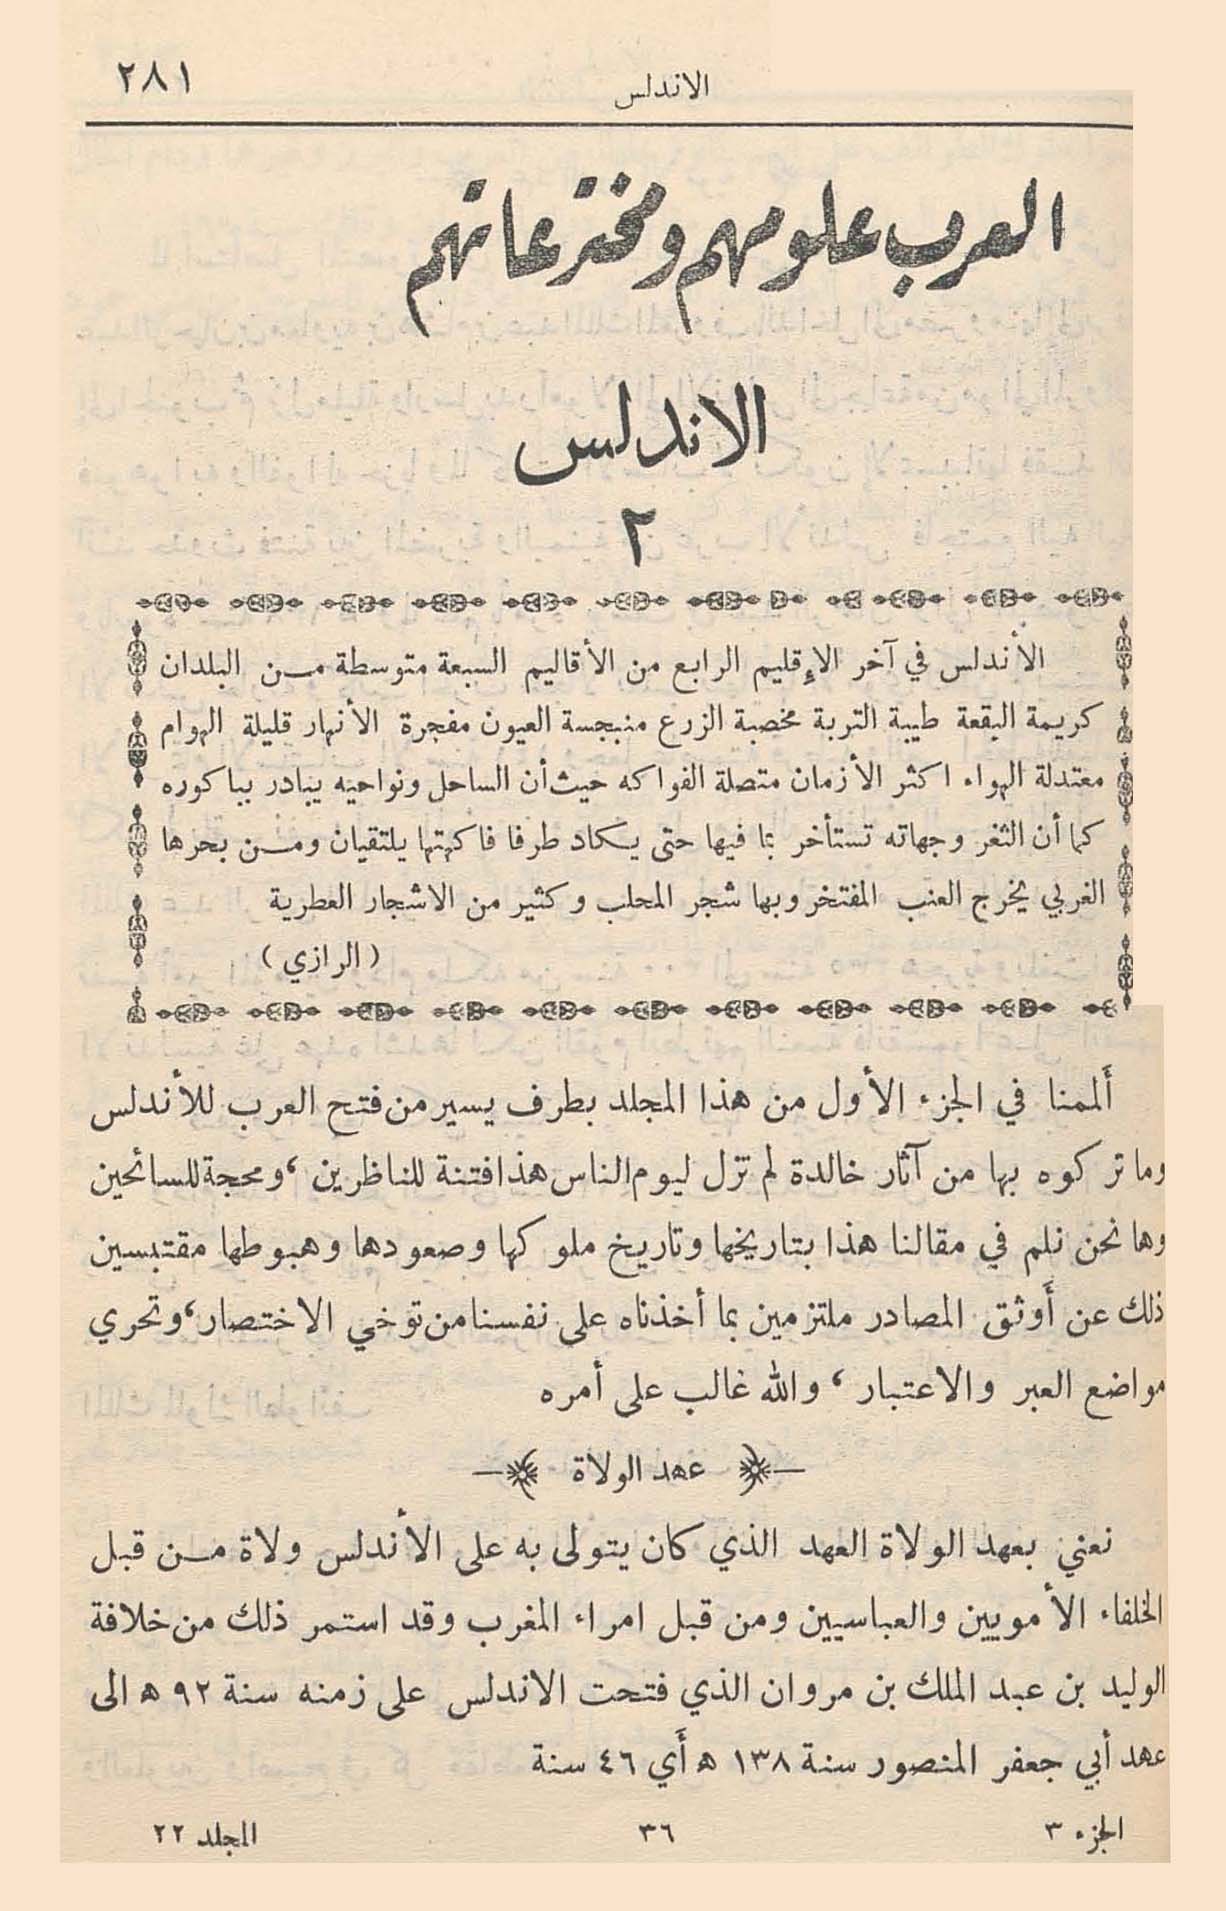 الاندلس ٢٨١
العرب علومهم ومخترعاتهم
الاندلس
٢
الأندلس في آخر الإقليم الرابع من الأقاليم السبعة متوسطة مـن البلدان
كريمة البقعة طيبة التربة مخصبة الزرع منبجسة العيون مفجرة الأنهار قليلة الهوام
معتدلة الهواء اكثر الأزمان متصلة الفواكه حيث أن الساحل ونواحيه يبادر بباكوره
كما أن الثغر وجهاته تستأخر بما فيها حتى يكاد طرفا فاكهتها يلتقيان ومـن بحرها
الغربي يخرج العنب المفتخر وبها شجر المحلب وكثير من الاشجار العطرية
(الرازي)
أَلممنا في الجزء الأول من هذا المجلد بطرف يسير من فتح العرب للأندلس
وما تركوه بها من آثار خالدة لم تزل ليوم الناس هذا فتنة للناظرين ، ومحجة للسائحين
وها نحن نلم في مقالنا هذا بتاريخها وتاريخ ملوكها وصعودها وهبوطها مقتبسين
ذلك عن أَوثق المصادر ملتزمين بما أخذناه على نفسنا من توخي الاختصار ، وتحري
مواضع العبر والاعتبار ، والله غالب على أمره
عهد الولاة
نعني بعهد الولاة العهد الذي كان يتولى به على الأندلس ولاة مـن قبل
الخلفاء الأمويين والعباسيين ومن قبل امراء المغرب وقد استمر ذلك من خلافة
الوليد بن عبد الملك بن مروان الذي فتحت الاندلس على زمنه سنة ٩٢ ه الى
عهد أبي جعفر المنصور سنة ١٣٨ ه أَي ٤٦ سنة
الجزء ٣ ٣٦ المجلد ٢٢